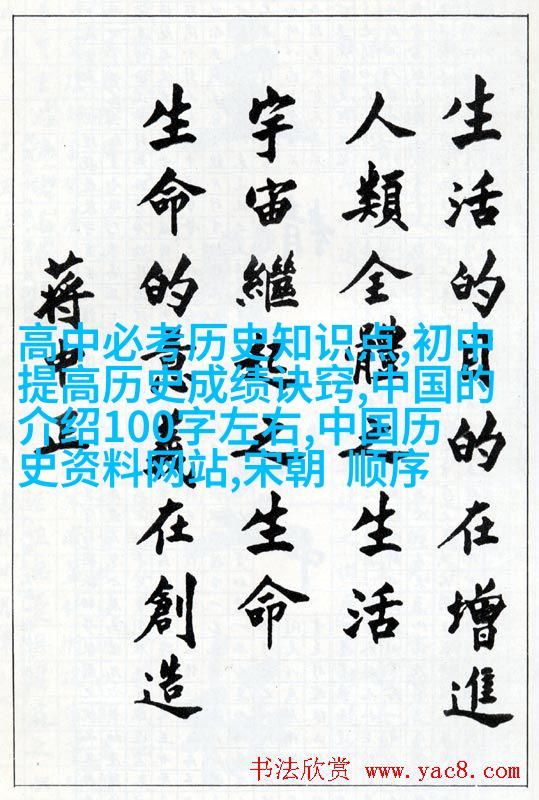 生活的目的在增進
人類全體之生活
生命的意義在創造
宇宙繼起之生命
蔣中正
高中必考历史知识点,初中
提高历史成绩诀窍,中国的
介绍100字左右,中国历
史资料网站,宋朝 顺序
书法欣赏 www.yac8.com